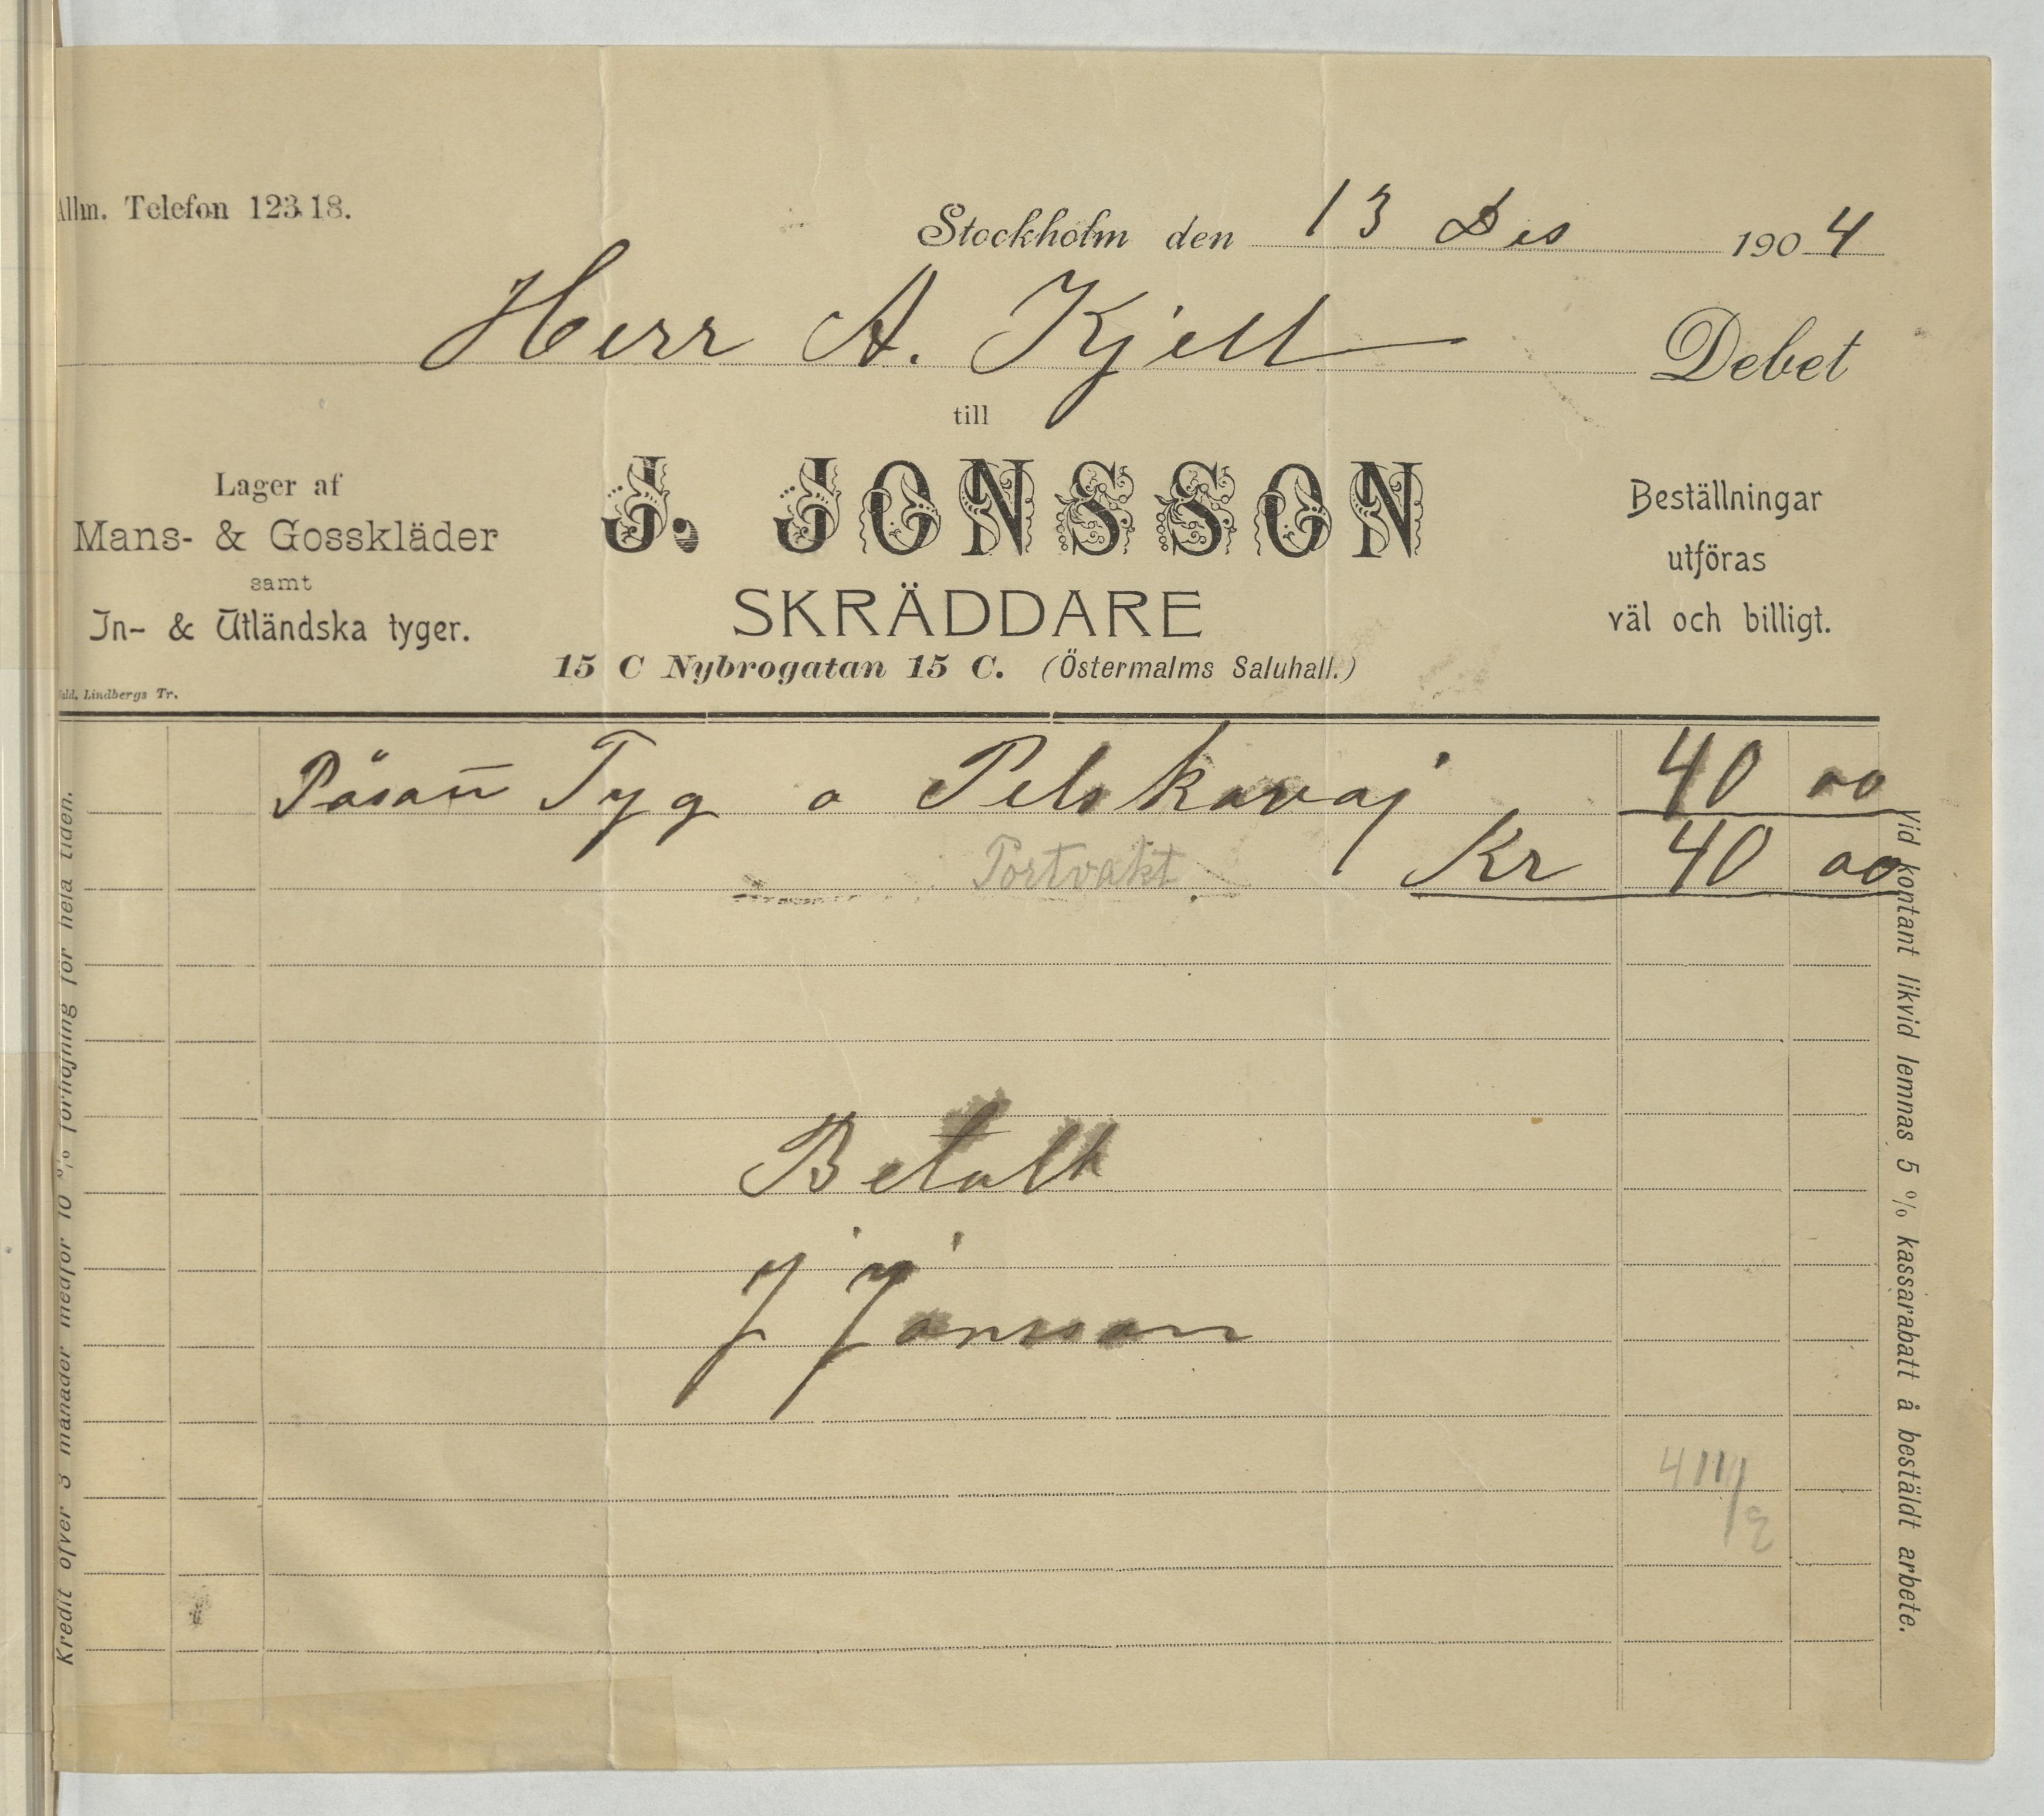 Allm. Telefon 12318.
Stockholm den 13 Des 1904
Herr A. Kjell Debet
till
Lager af
Mans- & Gosskläder
samt
In- & Utländska tyger.
J. JONSSON
SKRÄDDARE
15 C Nybrogatan 15 C. (Östermalms Saluhall.)
Beställningar
utföras
väl och billigt.
Vald. Lindbergs Tr.
Tyg o Pelskavaj 40 00
Portvakt Kr 40 00
Betalt
J Jonsson
Kredit öfver 3 månader medför 10 % förhöjning för hela tiden.
Vid kontant likvid lemnas 5 % kassarabatt å bestäldt arbete.